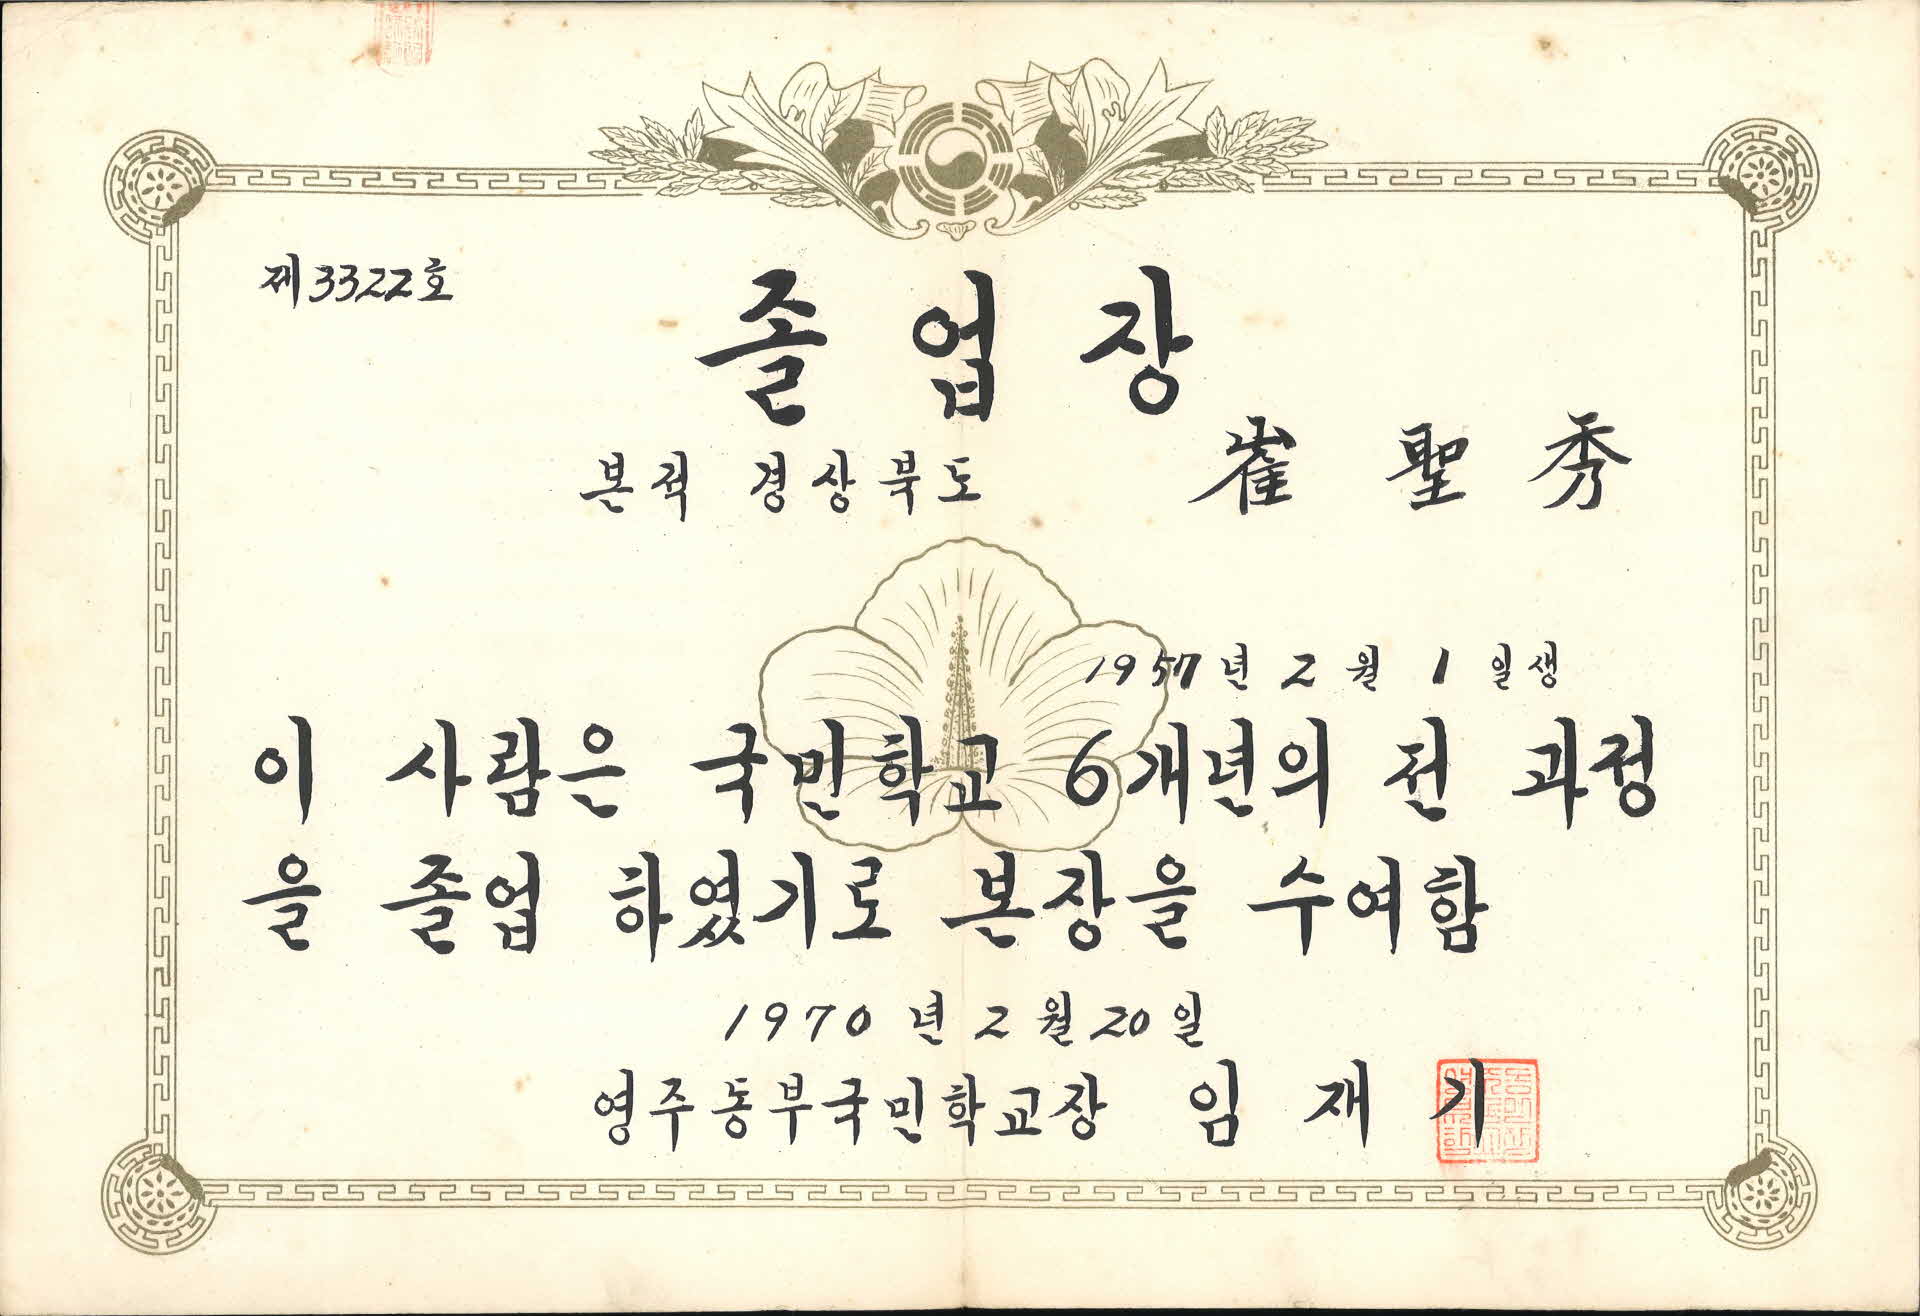 제3322호
졸업장
본적 경상북도 崔聖秀
1957년 2월 1일생
이 사람은 국민학교 6개년의 전 과정
을 졸업 하였기로 본장을 수여함
1970년 2월 20일
영주동부국민학교장 임재기